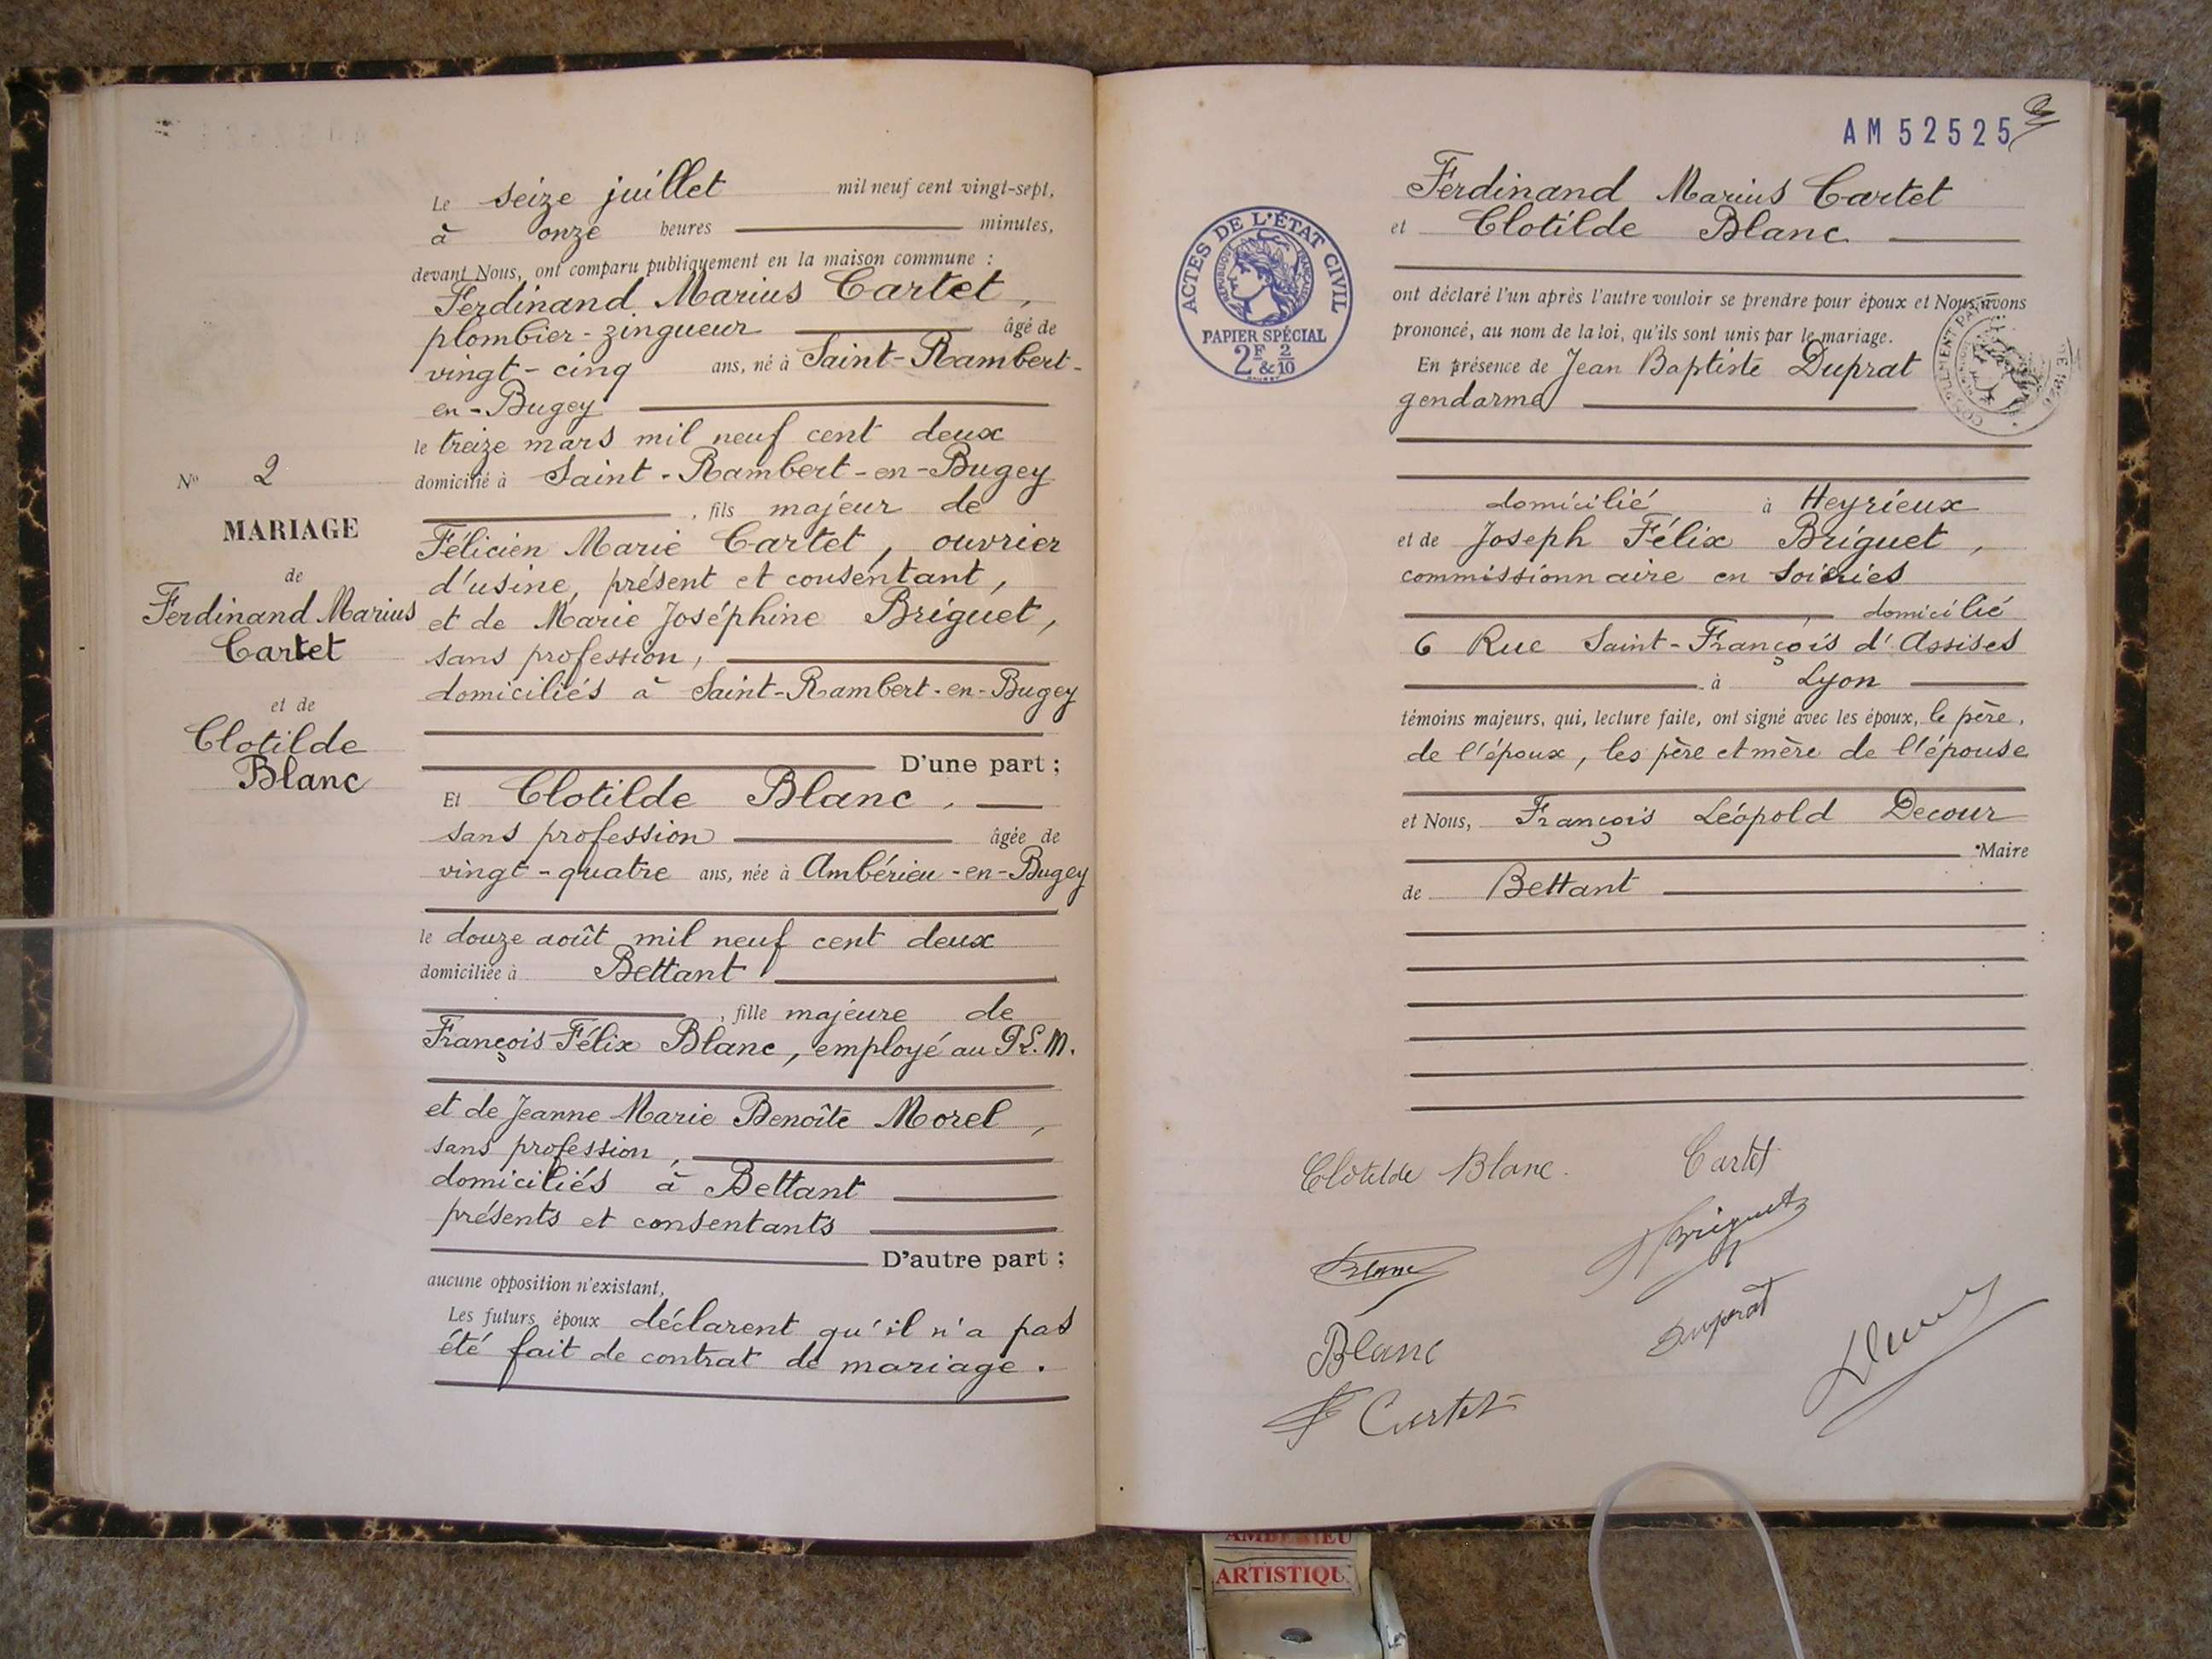 N° 2
MARIAGE
de
Ferdinand Marius
Cartet
et de
Clotilde
Blanc
Le seize juillet mil neuf cent vingt-sept,
à onze heures minutes,
devant Nous, ont comparu publiquement en la maison commune :
Ferdinand Marius Cartet,
plombier-zingueur âgé de
vingt-cinq ans, né à Saint-Rambert-
en-Bugey
le treize mars mil neuf cent deux
domicilié à Saint-Rambert-en-Bugey
, fils majeur de
Félicien Marie Cartet, ouvrier
d'usine, présent et consentant,
et de Marie Joséphine Briguet,
sans profession,
domiciliés à Saint-Rambert-en-Bugey
D'une part ;
Et Clotilde Blanc,
sans profession âgée de
vingt-quatre ans, née à Ambérieu-en-Bugey
le douze août mil neuf cent deux
domiciliée à Bettant
, fille majeure de
François Félix Blanc, employé au P.L.M.
et de Jeanne Marie Benoîte Morel,
sans profession,
domiciliés à Bettant
présents et consentants
D'autre part ;
aucune opposition n'existant,
Les futurs époux déclarent qu'il n'a pas
été fait de contrat de mariage.
AM 52525
ACTES DE L'ÉTAT CIVIL
RÉPUBLIQUE FRANÇAISE
PAPIER SPÉCIAL
2F & 2/10
Ferdinand Marius Cartet
et Clotilde Blanc
ont déclaré l'un après l'autre vouloir se prendre pour époux et Nous, avons
prononcé, au nom de la loi, qu'ils sont unis par le mariage.
En présence de Jean Baptiste Duprat
gendarme
domicilié à Heyrieux
et de Joseph Félix Briguet,
commissionnaire en soieries
, domicilié
6 Rue Saint-François d'Assises
à Lyon
témoins majeurs, qui, lecture faite, ont signé avec les époux, le père,
de l'époux, les père et mère de l'épouse
et Nous, François Léopold Decour
Maire
de Bettant
Clotilde Blanc. Cartet
Briguet
Blanc
Duprat
Blanc
F Cartet
AMBERIEU
ARTISTIQU